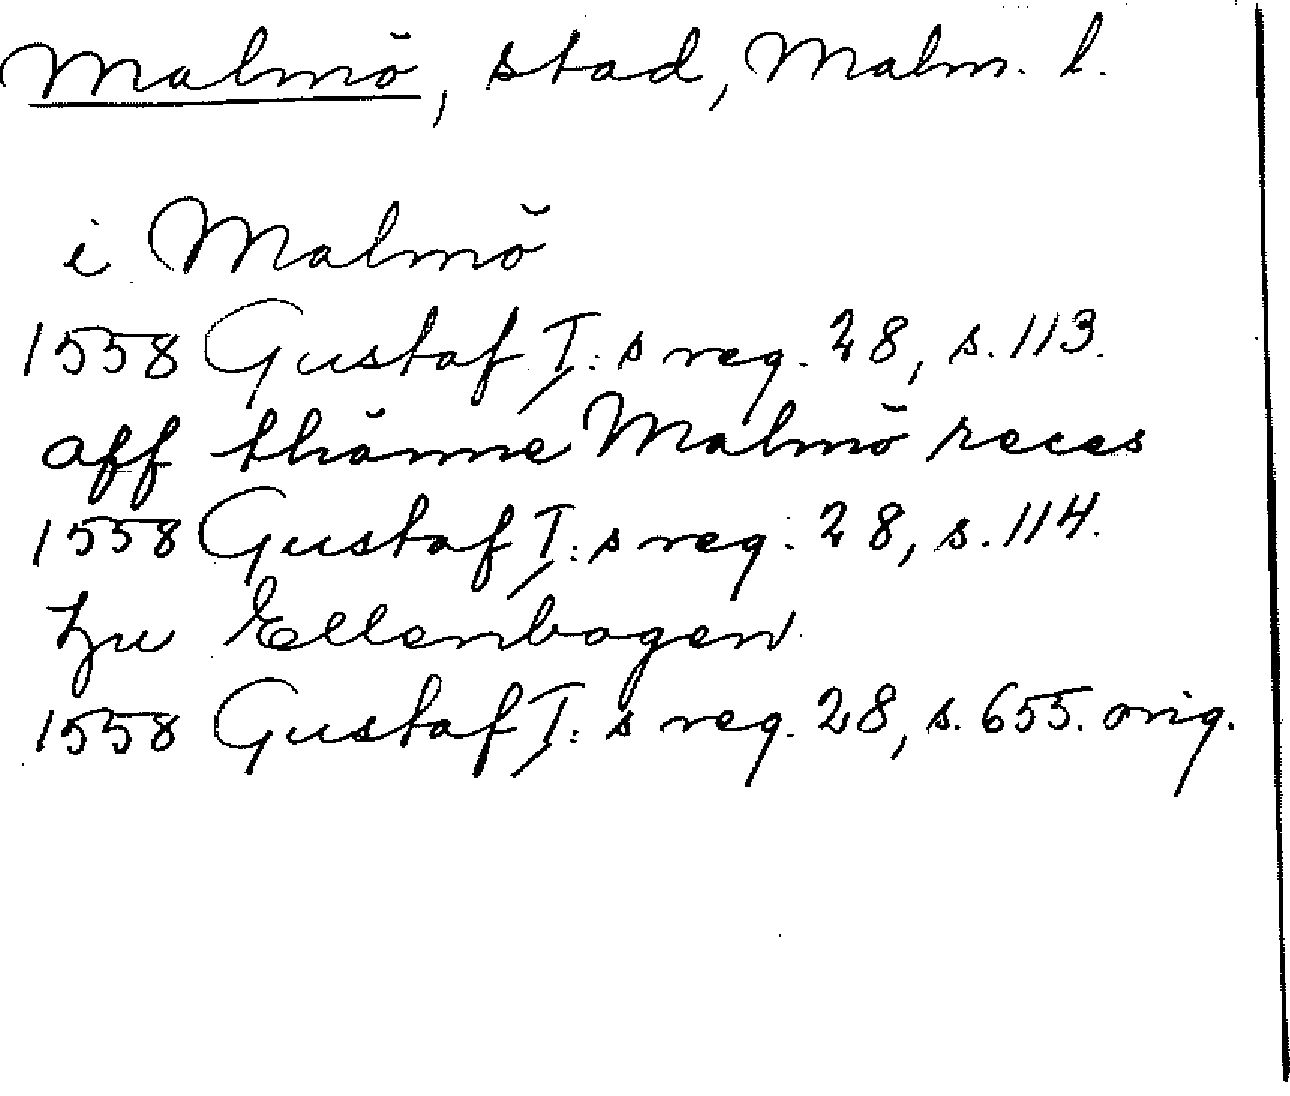 Malmö, stad, Malm. l.
i Malmö
1558 Gustaf I:s reg. 28, s. 113.
aff thänne Malmö reces
1558 Gustaf I:s reg. 28, s. 114.
tzu Ellenbogen
1558 Gustaf I:s reg. 28, s. 655. orig.